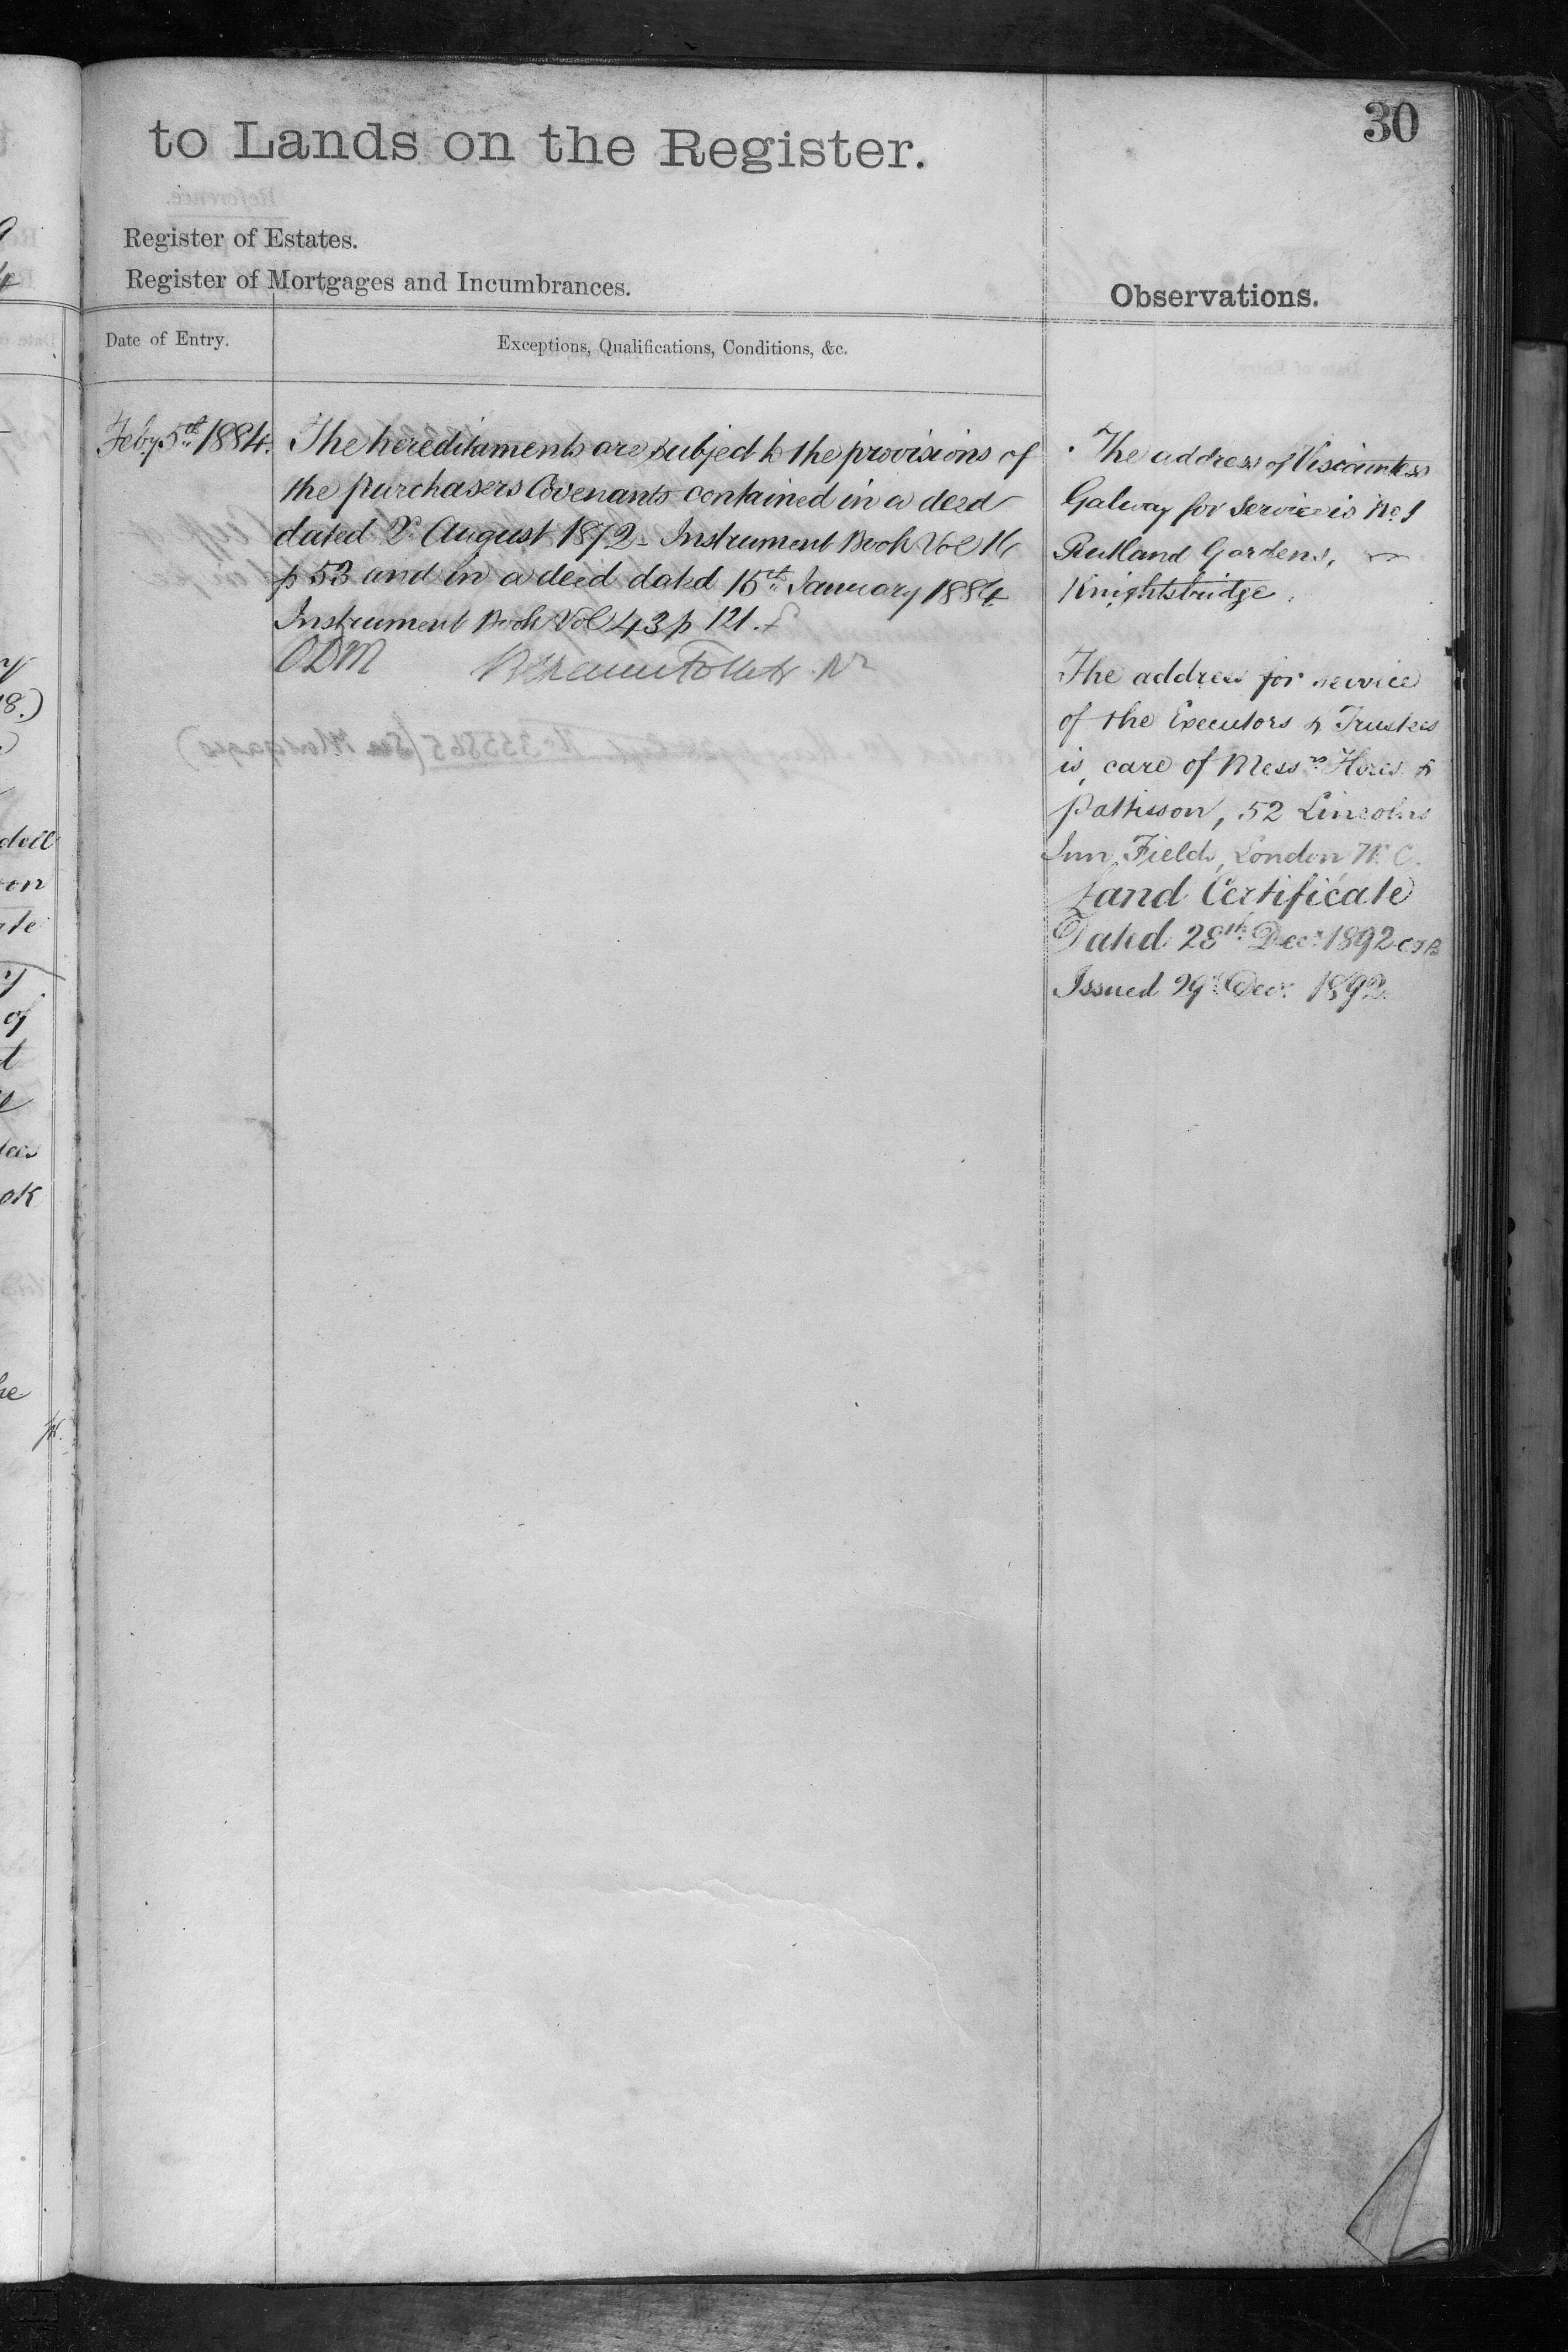 30
to Lands on the Register.
Register of Estates.
Register of Mortgages and Incumbrances.
Observations.
Date of Entry.
Exceptions, Qualifications, Conditions, &c.
Feby. 5th 1884.
The hereditaments are subject to the provisions of
the purchasers Covenants contained in a deed
dated 2d August 1872 - Instrument Book Vol 16
p 53 and in a deed dated 15th January 1884
Instrument Book Vol 43 p 121.
ODM
The address of Viscountess
Galway for service is No. 1
Rutland Gardens,
Knightsbridge.
The address for service
of the Executors & Trustees
is, care of Messrs Hores &
Pattisson, 52 Lincolns
Inn Fields, London W.C.
Land Certificate
Dated 28th Decr 1892
Issued 29th Decr 1892